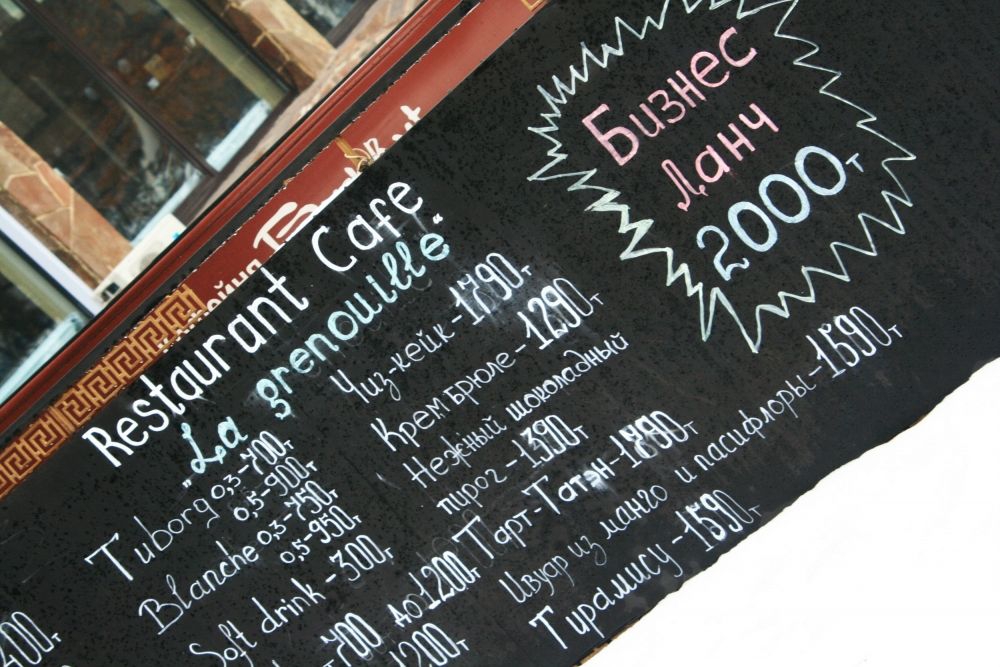 Restaurant Cafe
„La grenouille“
Бизнес
Ланч
2000т
Tuborg 0,3-700т
0,5-900т
Blanche 0,3-750т
0,5-950т
Soft drink-300т
700 до 1200т
1200т
400т
Чиз-кейк-1790т
Крем брюле-1290т
Нежный шоколадный
пирог-1390т
Тарт-Татэн-1890т
Цвуар из манго и пасифлоры-1590т
Тирамису-1590т